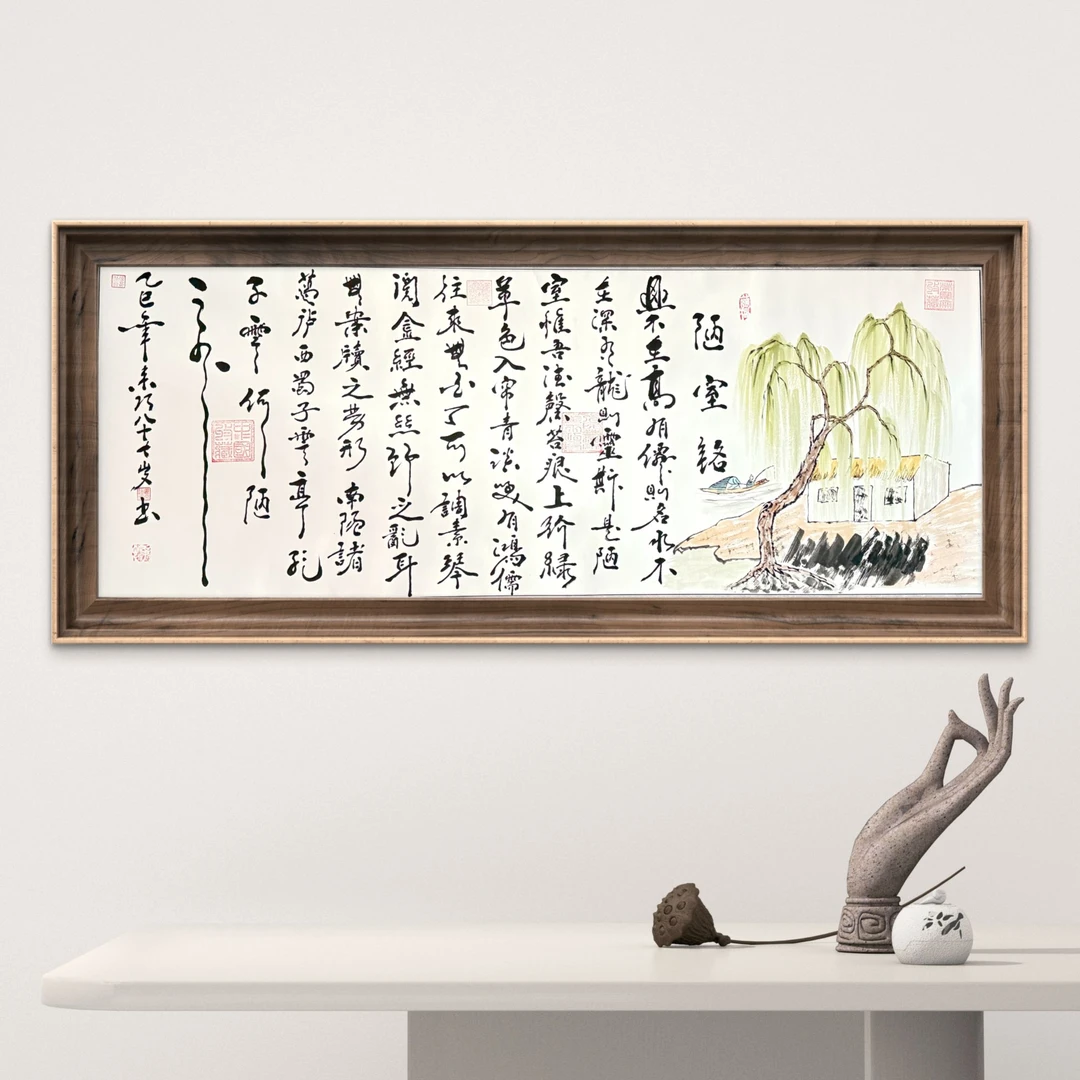 陋室銘
不在高有僊則名水不
在深有龍則靈斯是陋
室惟吾德馨苔痕上階緑
草色入帘青談笑有鴻儒
往來無白丁可以調素琴
閲金經無絲竹之亂耳
無案牘之勞形南陽諸
葛庐西蜀子雲亭孔
子雲何陋
之有
乙巳年八十七歲書